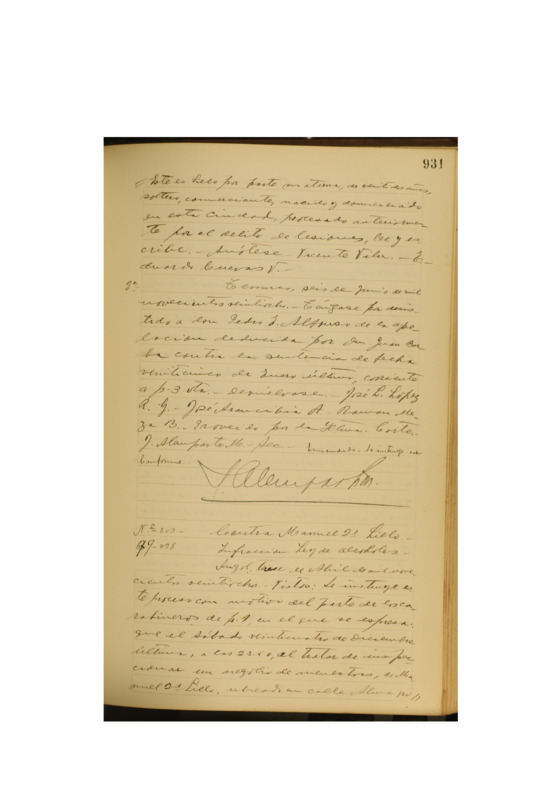 931
soltero, comerciante, nacido y domiciliado
en esta ciudad, procesado anteriormen-
te por el delito de lesiones, lee y es-
cribe. - Anótese - Vicente Vilu. - E-
duardo Cuevas V. -
2ª Temuco, seis de Junio de mil
novecientos veintiocho. - Téngase por desis-
tido a don Pedro J. Alfonso de la ape-
lación deducida por don Juan
ba contra la sentencia de fecha
veinticinco de Enero último, corriente
a p. 3 vta. - Devuélvase. - José L. López
R. G. - José Arancibia A. Ramon Me-
za B. - Proveído por la Iltma. Corte.
J. Alamparte M. - Sec. -
Conforme.
Nº
Contra Manuel 2º Lillo. -
Infracción Ley de alcoholes -
Angol, trece de Abril de mil nove-
cientos veintiocho. Vistos: Se instruye es-
te proceso con motivo del parte de los ca-
rabineros de p. 1 en el que se expresa:
que el Sábado veinticuatro de Diciembre
último, a las al tratar de inspec-
cionar un negocio de menestras, de Ma-
nuel 2º Lillo, ubicado en calle